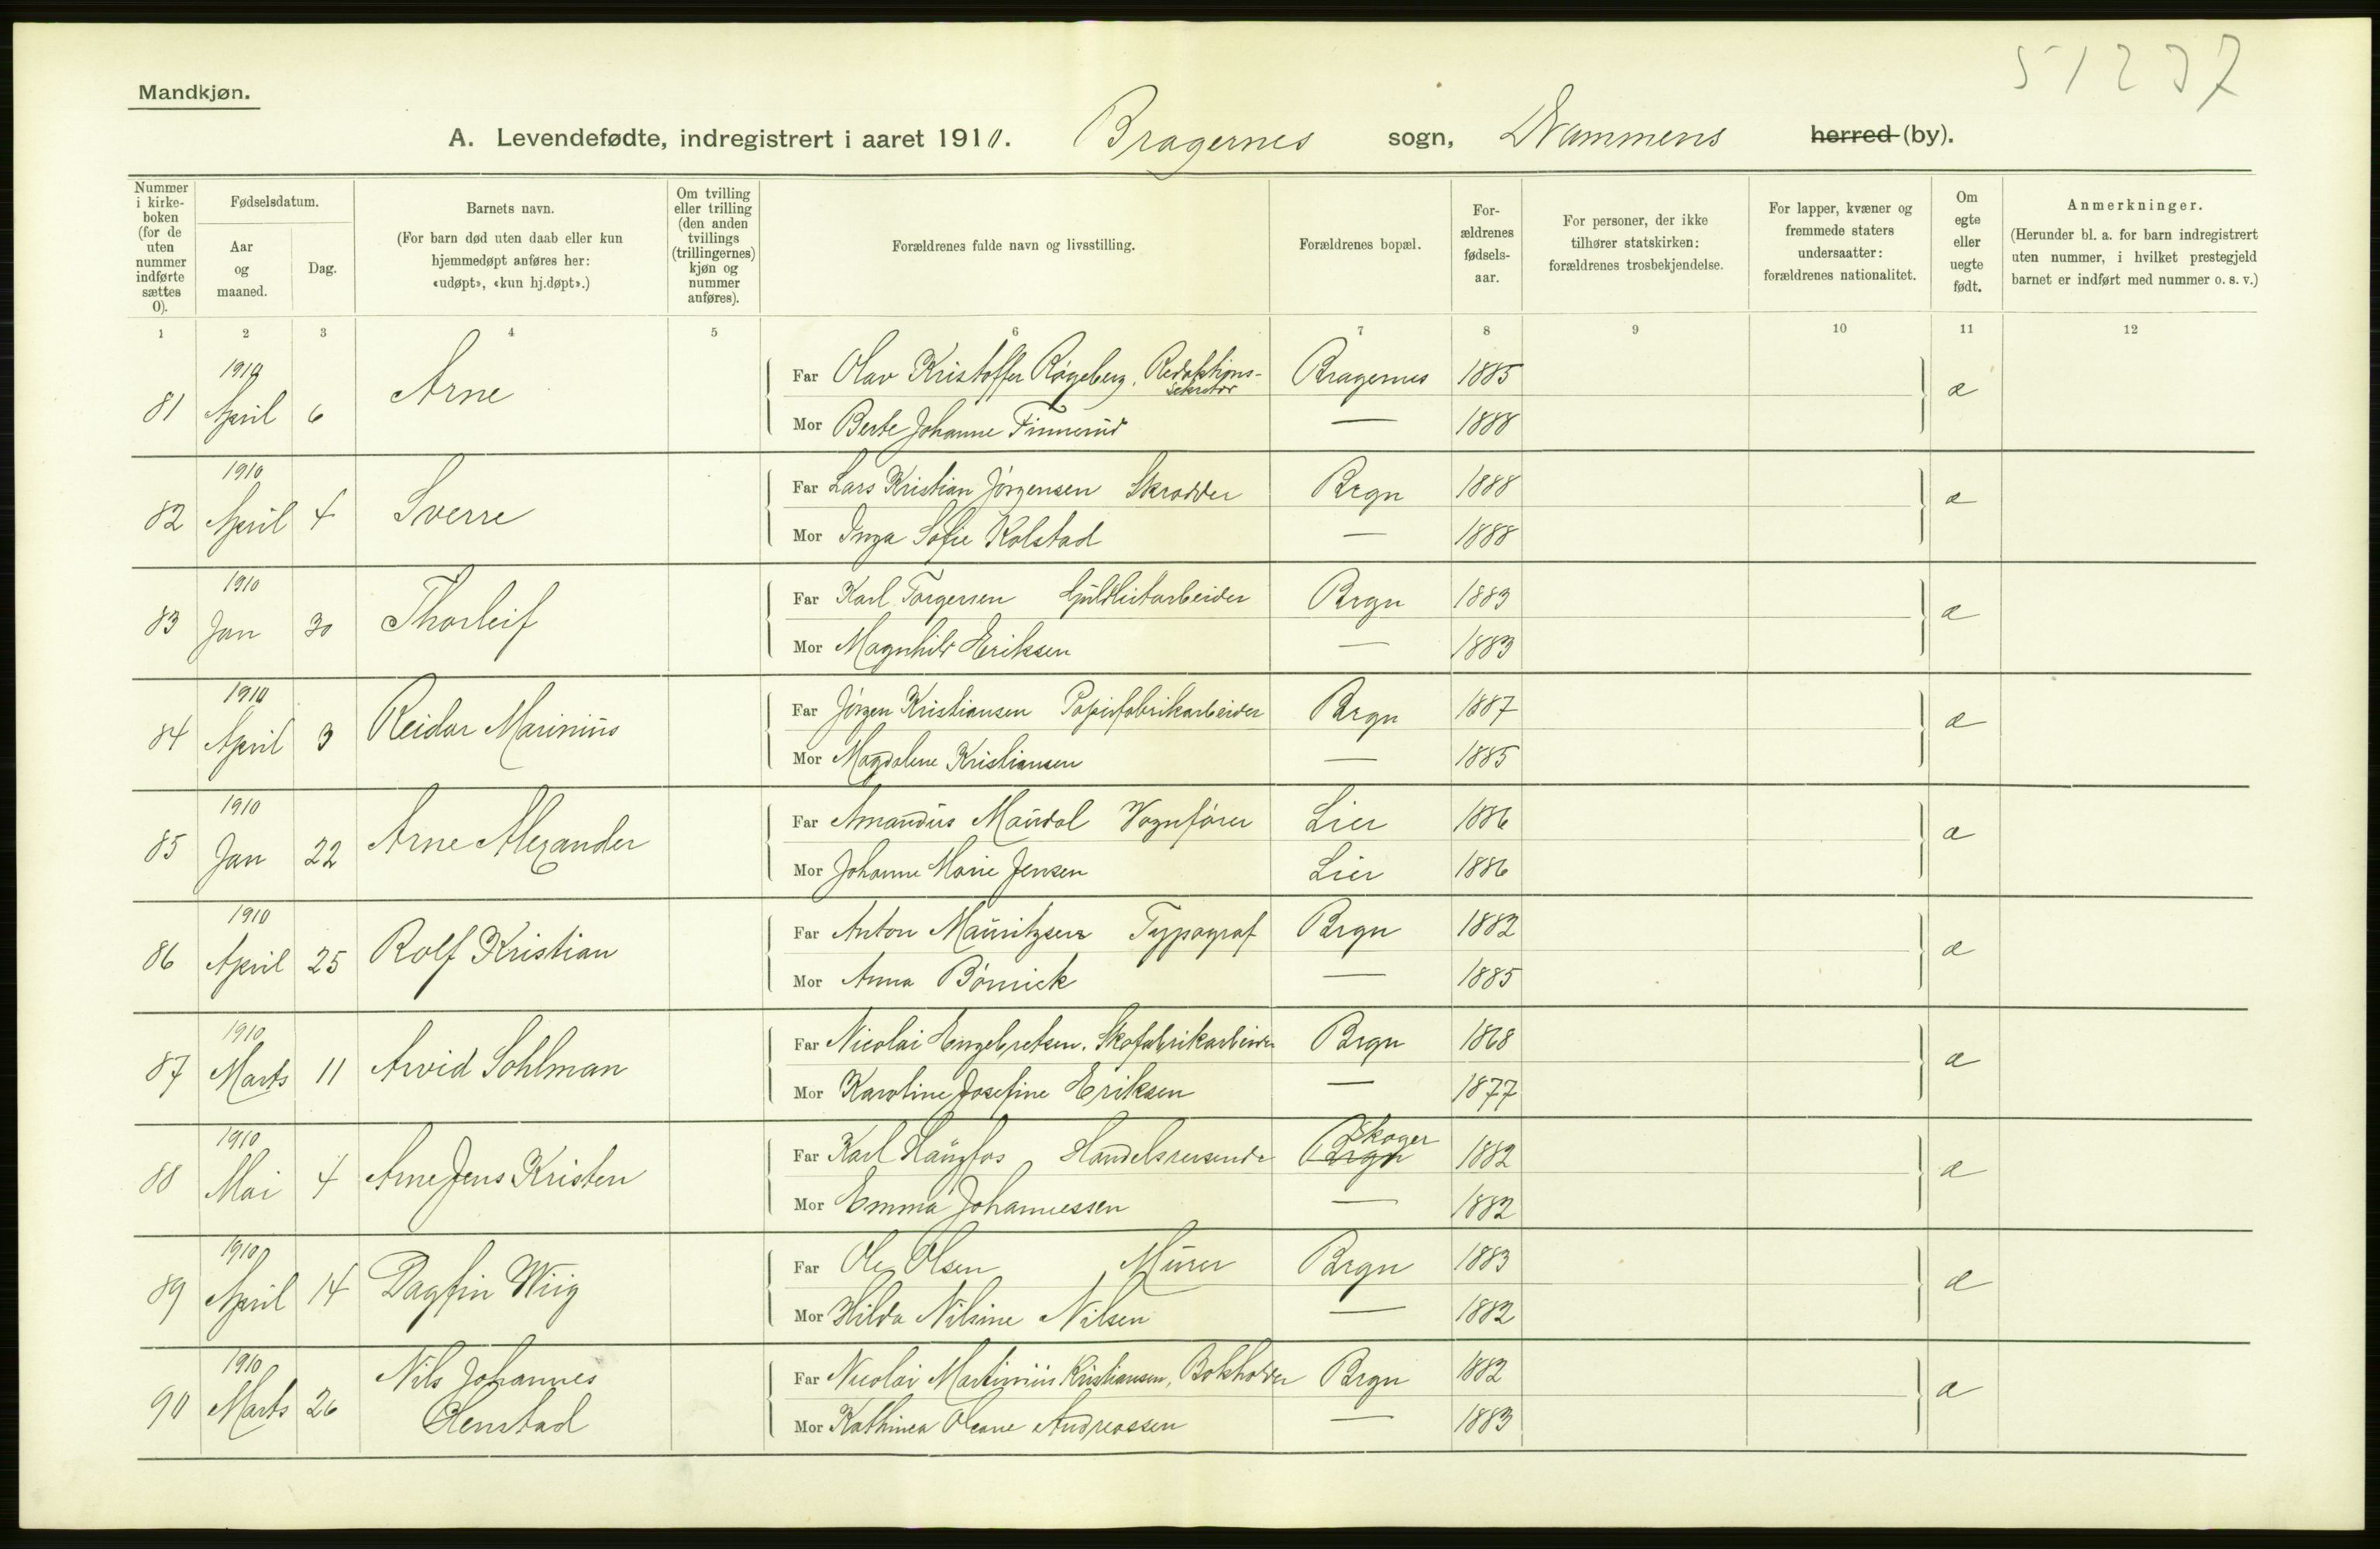 51237
Mandkjøn.
A. Levendefødte, indregistrert i aaret 1910. Bragernes sogn, Drammens herred (by).
Nummer i kirkeboken (for de uten nummer indførte sættes 0).
Fødselsdatum.
Aar og maaned.
Dag.
Barnets navn.
(For barn død uten daab eller kun hjemmedøpt anføres her: «udøpt», «kun hj.døpt».)
Om tvilling eller trilling (den anden tvillings (trillingernes) kjøn og nummer anføres).
Forældrenes fulde navn og livsstilling.
Forældrenes bopæl.
Forældrenes fødselsaar.
For personer, der ikke tilhører statskirken: forældrenes trosbekjendelse.
For lapper, kvæner og fremmede staters undersaatter: forældrenes nationalitet.
Om egte eller uegte født.
Anmerkninger.
(Herunder bl. a. for barn indregistrert uten nummer, i hvilket prestegjeld barnet er indført med nummer o. s. v.)
1 2 3 4 5 6 7 8 9 10 11 12
81 1910 April 6 Arne Far Olav Kristoffer Røgeberg, Redaktions-sekretær Bragernes 1885 æ
Mor Berte Johanne Finnerud — 1888
82 1910 April 4 Sverre Far Lars Kristian Jørgensen Skrædder Brgn 1888 æ
Mor Inga Sofie Kolstad — 1888
83 1910 Jan 30 Thorleif Far Karl Torgersen Guldlistarbeider Brgn 1883 æ
Mor Magnhild Eriksen — 1883
84 1910 April 3 Reidar Marinius Far Jørgen Kristiansen Papirfabrikarbeider Brgn 1887 æ
Mor Magdalene Kristiansen — 1885
85 1910 Jan 22 Arne Alexander Far Amandus Maurdal Vognfører Lier 1886 æ
Mor Johanne Marie Jensen Lier 1886
86 1910 April 25 Rolf Kristian Far Anton Mauritzsen Typograf Brgn 1882 æ
Mor Anna Börnick — 1885
87 1910 Marts 11 Arvid Sohlman Far Nicolai Engebretsen. Skofabrikarbeider Brgn 1868 æ
Mor Karoline Josefine Eriksen — 1877
88 1910 Mai 4 Arne Jens Kristen Far Karl Haugfos Handelsreisende Brgn Skoger 1882 æ
Mor Emma Johannessen — 1882
89 1910 April 14 Dagfin Wiig Far Ole Olsen, Murer Brgn 1883 æ
Mor Hilda Nilsine Nilsen — 1882
90 1910 Marts 26 Nils Johannes Far Nicolai Martinius Kristiansen, Bokholder Brgn 1882 æ
Olenstad Mor Kathinca Oleane Andreassen — 1883